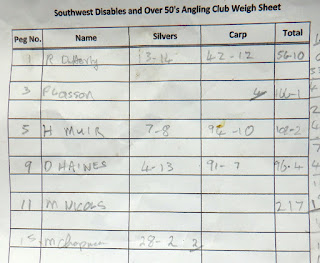 Southwest Disables and Over 50's Angling Club Weigh Sheet
Peg No. Name Silvers Carp Total
1 R 13-14 42-12 56-10
3
5 H MUIR 7-8 94-10 102-2
9 D HAINES 4-13 91-7 96-4
11 M NICOLS 217
15 M Chapman 28-2